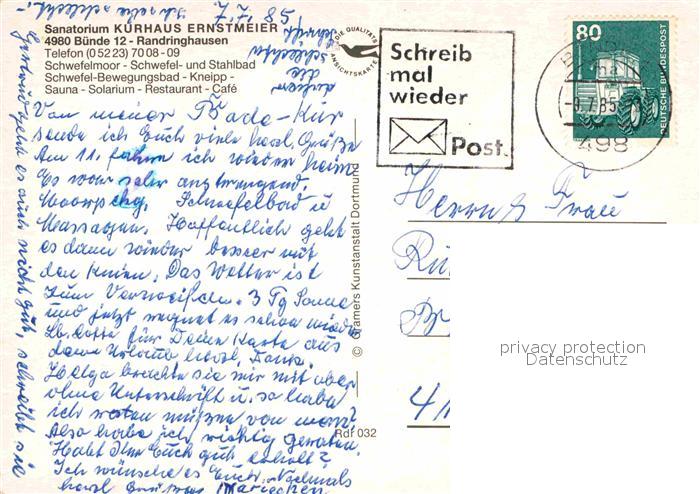 Sanatorium KURHAUS ERNSTMEIER
4980 Bünde 12 - Randringhausen
Telefon (0 52 23) 70 08 - 09
Schwefelmoor - Schwefel- und Stahlbad
Schwefel-Bewegungsbad - Kneipp -
Sauna - Solarium - Restaurant - Café
7.7.85
die schlechte
Schrift
DIE QUALITÄTS
ANSICHTSKARTE
Schreib
mal
wieder
Post
80
DEUTSCHE BUNDESPOST
7.85
498
Von meiner Bade-Kur
sende ich Euch viele herzl. Grüße
Am 11. fahren ich wieder heim
Es war sehr anstrengend.
Moorpckg. Schwefelbad u
Massagen. Hoffentlich geht
es dann wieder besser mit
den Knien. Das Wetter ist
zum Verzweifeln. 3 Tg Sonne
und jetzt regnet es schon wieder
Lb. Lotte für Deine Karte aus
dem Urlaub herzl. Dank.
Helga brachte sie mir mit aber
ohne Unterschrift u. so habe
ich raten müssen von wem?
Also habe ich richtig geraten.
Habt Ihr Euch gut erholt?
Ich wünsche es Euch. Nochmals
herzl Grüße
Gertrud geht es auch nicht gut, schreibt sie
© Gramers Kunstanstalt Dortmund
Rdf 032
Herrn & Frau
4
privacy protection
Datenschutz